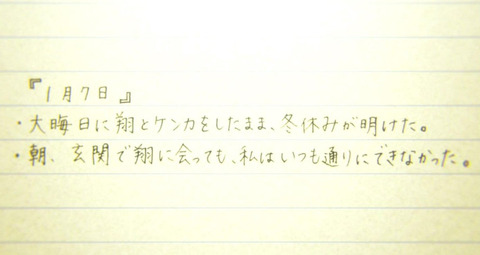 『1月7日』
・大晦日に翔とケンカをしたまま、冬休みが明けた。
・朝、玄関で翔に会っても、私はいつも通りにできなかった。